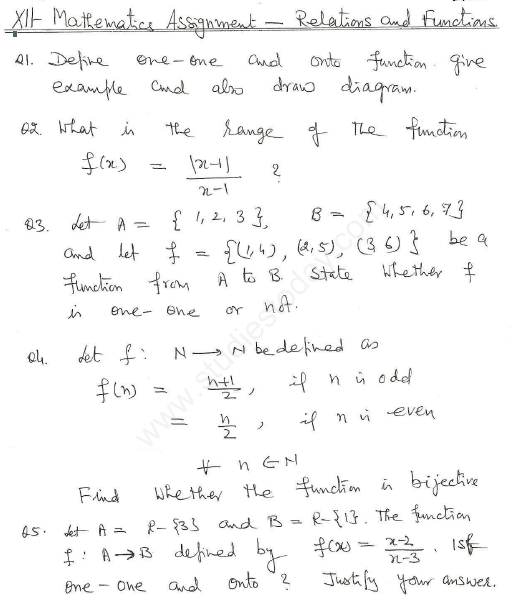 XII- Mathematics Assignment — Relations and Functions
Q1. Define one-one and onto function. give
example and also draw diagram.
Q2. What is the range of the function
f(x) = |x-1| / x-1 ?
Q3. Let A = { 1, 2, 3 }, B = { 4, 5, 6, 7 }
and let f = {(1,4), (2,5), (3,6)} be a
function from A to B. State whether f
is one-one or not.
Q4. Let f : N → N be defined as
f(n) = n+1 / 2 , if n is odd
= n / 2 , if n is even
∀ n ∈ N
Find whether the function is bijective
Q5. Let A = R-{3} and B = R-{1}. The function
f : A → B defined by f(x) = x-2 / x-3 . Is f
one-one and onto ? Justify your answer.
www.studiestoday.com